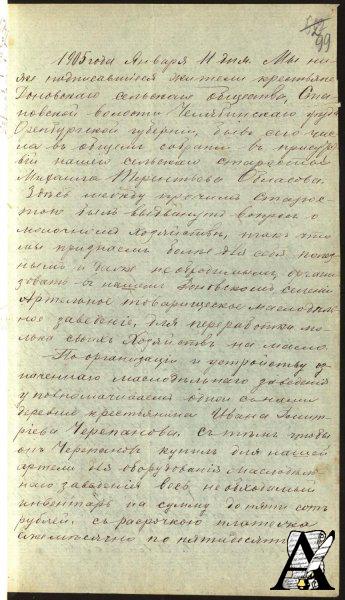 99
1905 года Января 11 дня. Мы ни-
же подписавшiеся жители крестьяне
сельскаго общества,
волости Челябинскаго уезда
Оренбургской губернiи, бывъ сего чис-
ла въ общемъ собранiи въ присутст-
вiи нашего сельскаго старосты
Михаила Власова.
Здесь между прочимъ Старос-
тою былъ выдвинутъ вопросъ о
молочномъ хозяйстве, такъ что
мы признаемъ более для себя полез-
нымъ и даже необходимымъ органи-
зовать въ нашемъ селенiи
Артельное товарищеское маслодель-
ное заведенiе, для переработки мо-
лока своихъ хозяйствъ на масло.
По организацiи и устройству оз-
наченнаго маслодельнаго заведенiя
уполномачиваемъ одной съ нами
деревни крестьянина Ивана Димит-
рiева Черепанова, съ темъ чтобы
онъ Черепановъ купилъ для нашей
артели для оборудованiя маслодель-
наго заведенiя весь необходимый
инвентарь на сумму до пяти сотъ
рублей, съ разсрочкою платежа
ежемесячно по пятидесяти
А